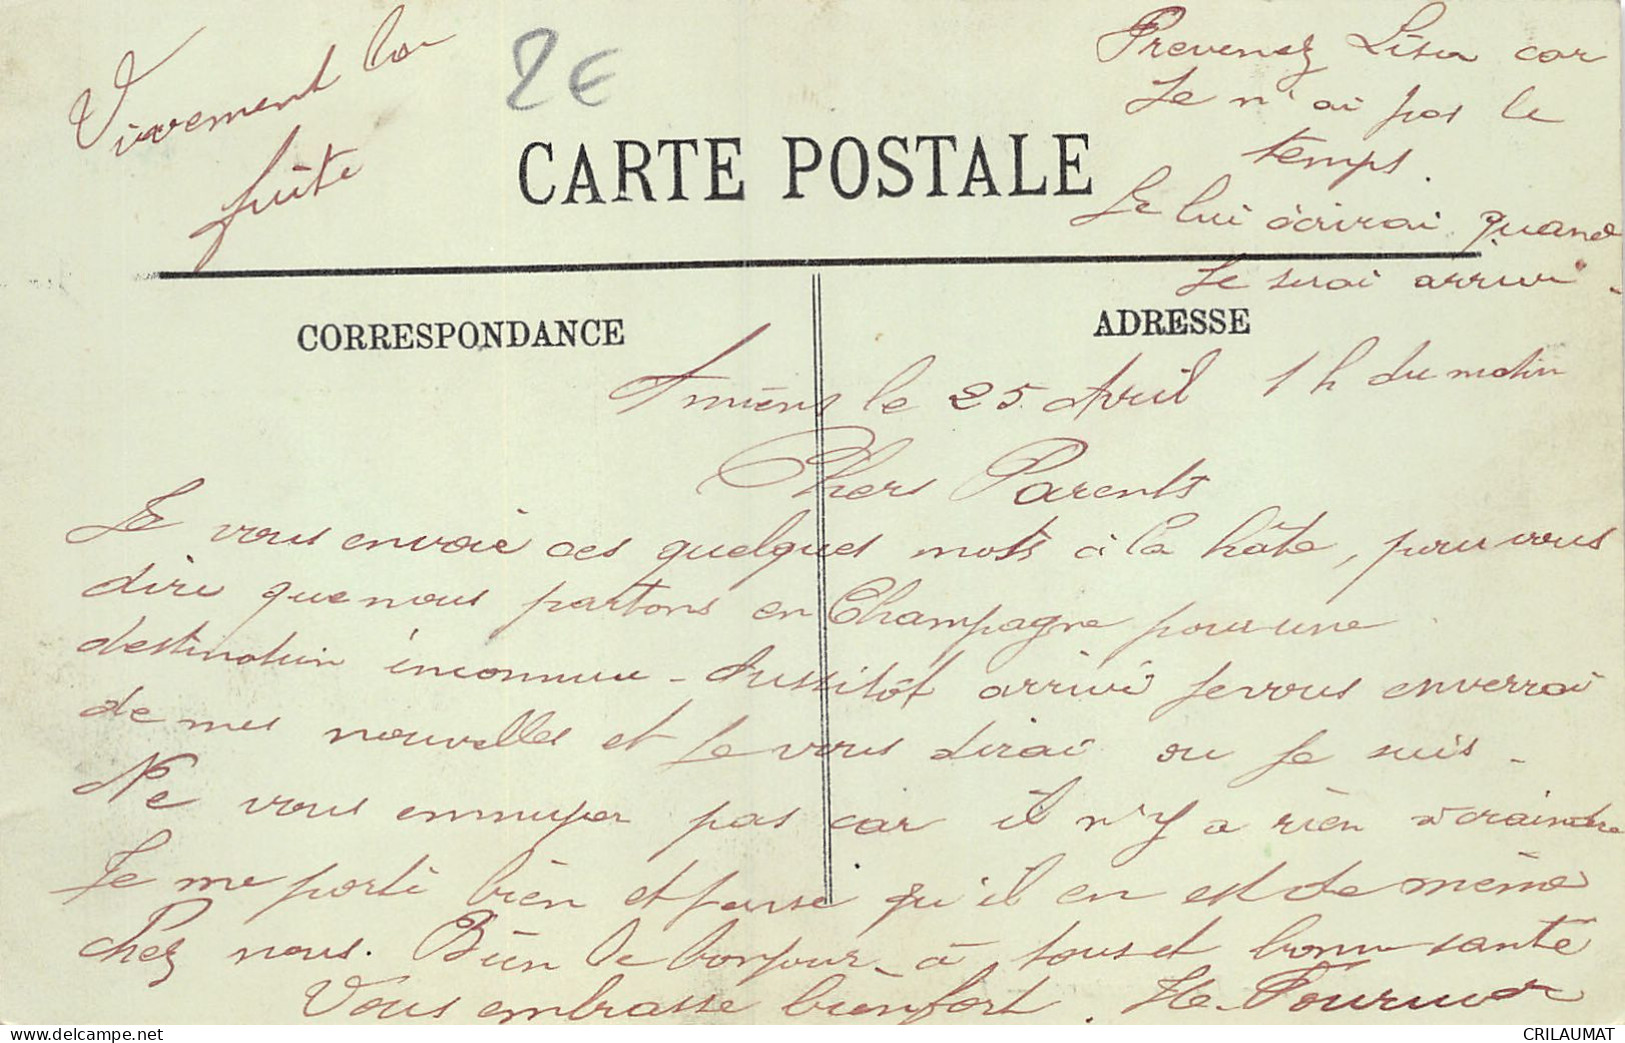 Vivement la
fuite
2€
Prevenez Lisa car
Je n'ai pas le
temps.
Je lui écrirai quand
Je serai arrivé.
CARTE POSTALE
CORRESPONDANCE
ADRESSE
Amiens le 25 Avril 1 h du matin
Chers Parents
Je vous envoie ces quelques mots à la hâte, pour vous
dire que nous partons en Champagne pour une
destination inconnue - Aussitôt arrivé Je vous enverrai
de mes nouvelles et Je vous dirai ou Je suis -
Ne vous ennuyer pas car il n'y a rien a craindre
Je me porte bien et pense qu'il en est de même
chez nous. Bien le bonjour à tous et bonne santé
Vous embrasse bien fort.
CRILAUMAT